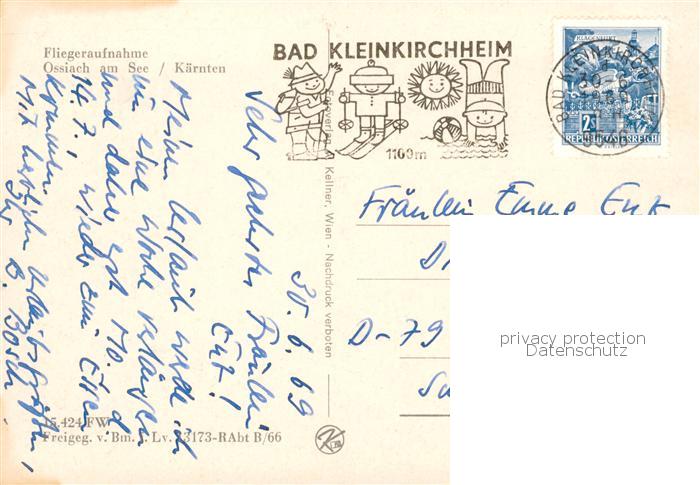 Fliegeraufnahme
Ossiach am See / Kärnten
BAD KLEINKIRCHHEIM
1100m
KLAGENFURT
2S
REPUBLIK ÖSTERREICH
BAD KLEINKIRCHHEIM
Kellner, Wien - Nachdruck verboten
30. 6. 69
Sehr geehrtes Fräulein
Enk!
Meinen Urlaub werde ich
um eine Woche verlängern
und daher erst Mo. d.
14. 7. wieder zum Essen
kommen
Mit herzlichen Urlaubsgrüßen,
Ihr B.
Fräulein Emme Enk
D-79
15.424 FW
Freigeg. v. Bm. f. Lv. 13173-RAbt B/66
privacy protection
Datenschutz